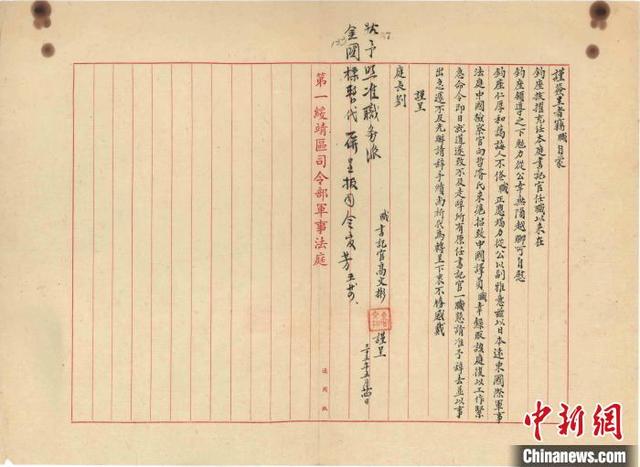 謹簽呈者竊職自蒙
鈞座拔擢充任本庭書記官任職以來在
鈞座領導之下勉力從公幸無隕越聊可自慰
鈞座仁厚和藹誨人不倦職正應竭力從公以副雅意茲以日本遠東國際軍事
法庭中國檢察官向哲濬氏來滬招致中國譯員職幸錄取該庭復以工作緊
急命令即日就道遂致不及走辭所有原任書記官一職懇請准予辭去並以事
出急遽不及先辦請辭手續尚祈代為轉呈下來不勝感戴
謹呈
庭長劉
職書記官高文彬 謹呈
三十五年五月四日
予照准職務派
金國標暫代
第一綏靖區司令部軍事法庭
通用紙
中新網
Chinanews.com